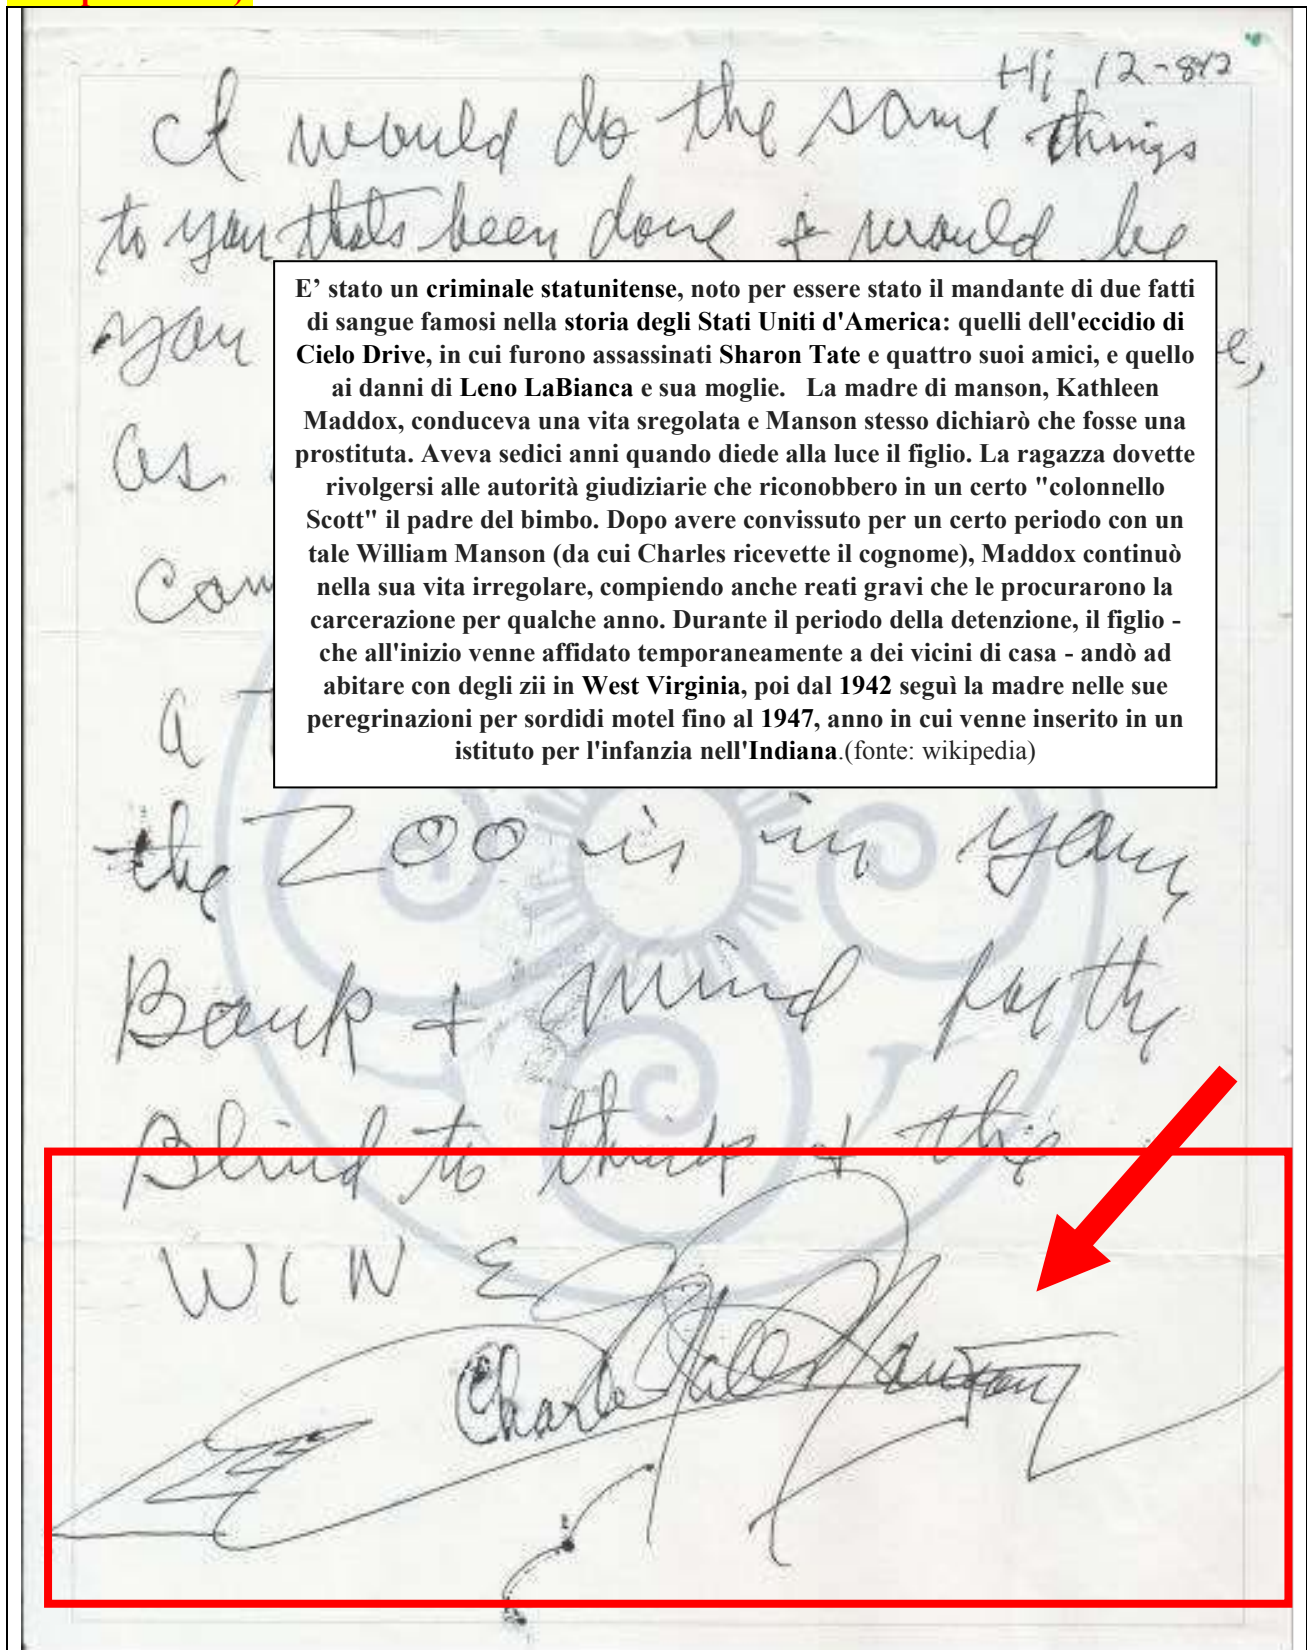 Hi 12-842
I would do the same things
to you thats been done & would be
you
as
a
E’ stato un criminale statunitense, noto per essere stato il mandante di due fatti
di sangue famosi nella storia degli Stati Uniti d'America: quelli dell'eccidio di
Cielo Drive, in cui furono assassinati Sharon Tate e quattro suoi amici, e quello
ai danni di Leno LaBianca e sua moglie. La madre di manson, Kathleen
Maddox, conduceva una vita sregolata e Manson stesso dichiarò che fosse una
prostituta. Aveva sedici anni quando diede alla luce il figlio. La ragazza dovette
rivolgersi alle autorità giudiziarie che riconobbero in un certo "colonnello
Scott" il padre del bimbo. Dopo avere convissuto per un certo periodo con un
tale William Manson (da cui Charles ricevette il cognome), Maddox continuò
nella sua vita irregolare, compiendo anche reati gravi che le procurarono la
carcerazione per qualche anno. Durante il periodo della detenzione, il figlio -
che all'inizio venne affidato temporaneamente a dei vicini di casa - andò ad
abitare con degli zii in West Virginia, poi dal 1942 seguì la madre nelle sue
peregrinazioni per sordidi motel fino al 1947, anno in cui venne inserito in un
istituto per l'infanzia nell'Indiana.(fonte: wikipedia)
the ZOO is in your
Bank + mind for the
Blind to think + the
WIN
Charles Manson